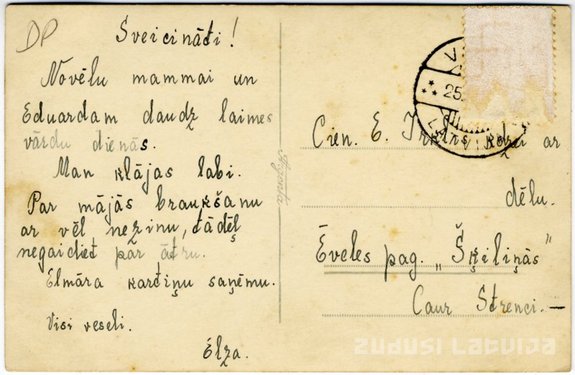 DP
Sveicināti!
Novēlu mammai un
Eduardam daudz laimes
vārdu dienās.
Man klājas labi.
Par mājās braukšanu
ar vēl nezinu, tādēļ
negaidiet par ātru.
Elmāra kartiņu saņēmu.
Visi veseli.
Elza.
25.
Cien. E. kdzei ar
dēlu.
Ēveles pag. „Šķiliņās"
Caur Strenci.—
zudusi Latvija